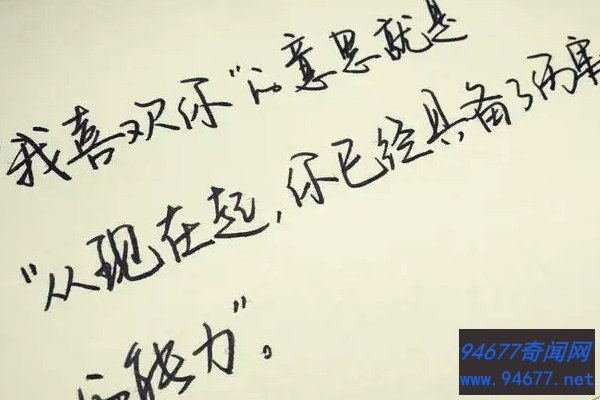 我喜欢你"的意思就是
"从现在起,你已经具备了伤害
的能力"。
94677奇闻网
www.94677.net